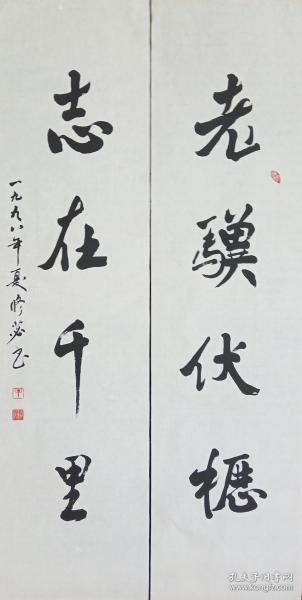 老驥伏櫪
志在千里
一九九八年夏修
孔夫子旧书网
www.kongfz.com